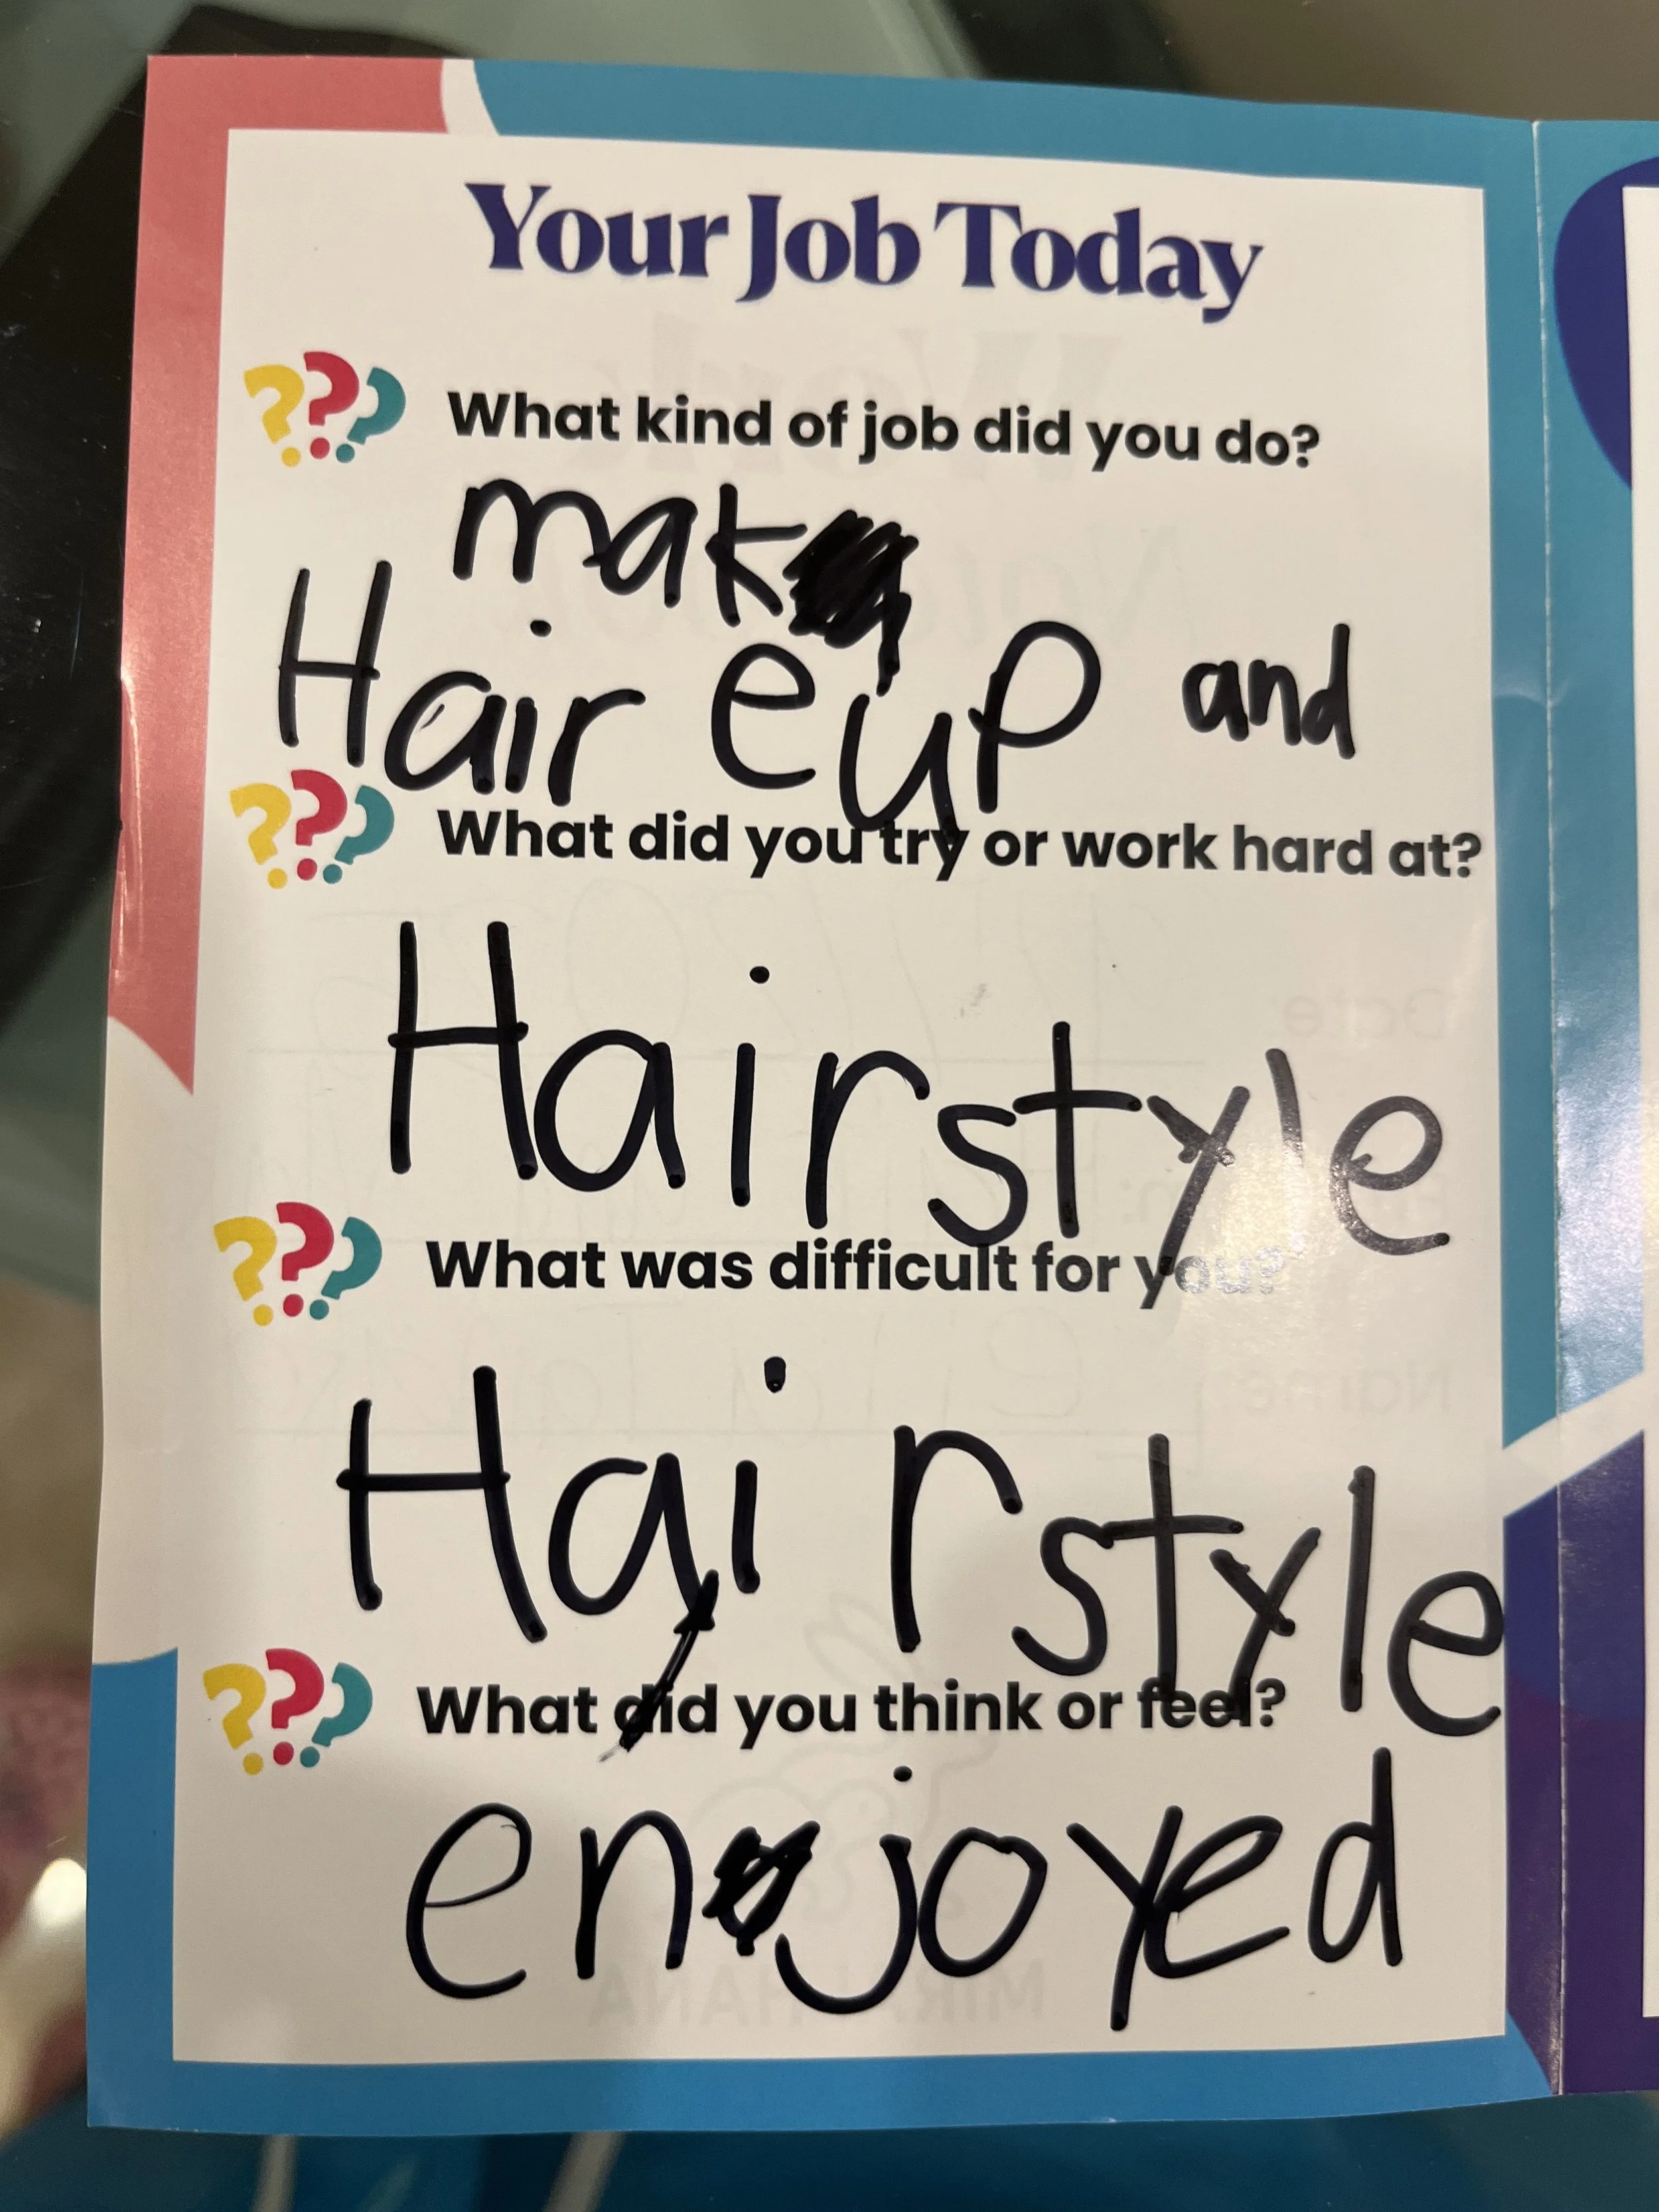 Your Job Today
??? What kind of job did you do?
mak
Hair eup and
??? What did you try or work hard at?
Hairstyle
??? What was difficult for you?
Hairstyle
??? What did you think or feel?
enjoyed